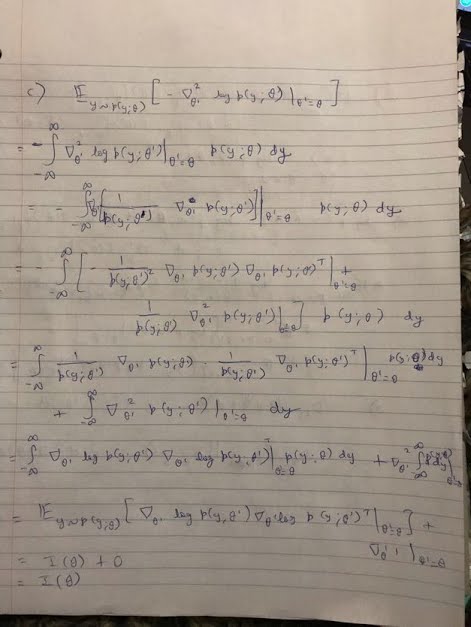 c) 𝔼_{y∼p(y;θ)} [ - ∇²_{θ'} log p(y;θ') |_{θ'=θ} ]
= - ∫_{-∞}^{∞} ∇²_{θ'} log p(y;θ') |_{θ'=θ} p(y;θ) dy
= - ∫_{-∞}^{∞} ∇_{θ'} [ 1/p(y;θ') ∇_{θ'} p(y;θ') ] |_{θ'=θ} p(y;θ) dy
= - ∫_{-∞}^{∞} [ - 1/p(y;θ')² ∇_{θ'} p(y;θ') ∇_{θ'} p(y;θ')^T |_{θ'=θ} +
1/p(y;θ') ∇²_{θ'} p(y;θ') |_{θ'=θ} ] p(y;θ) dy
= ∫_{-∞}^{∞} 1/p(y;θ') ∇_{θ'} p(y;θ) · 1/p(y;θ') ∇_{θ'} p(y;θ')^T |_{θ'=θ} p(y;θ) dy
+ ∫_{-∞}^{∞} ∇²_{θ'} p(y;θ') |_{θ'=θ} dy
= ∫_{-∞}^{∞} ∇_{θ'} log p(y;θ') ∇_{θ'} log p(y;θ')^T |_{θ'=θ} p(y;θ) dy + ∇²_{θ'} ∫_{-∞}^{∞} dy |_{θ'=θ}
= 𝔼_{y∼p(y;θ)} [ ∇_{θ'} log p(y;θ') ∇_{θ'} log p(y;θ')^T |_{θ'=θ} ] +
∇²_{θ'} 1 |_{θ'=θ}
= I(θ) + 0
= I(θ)